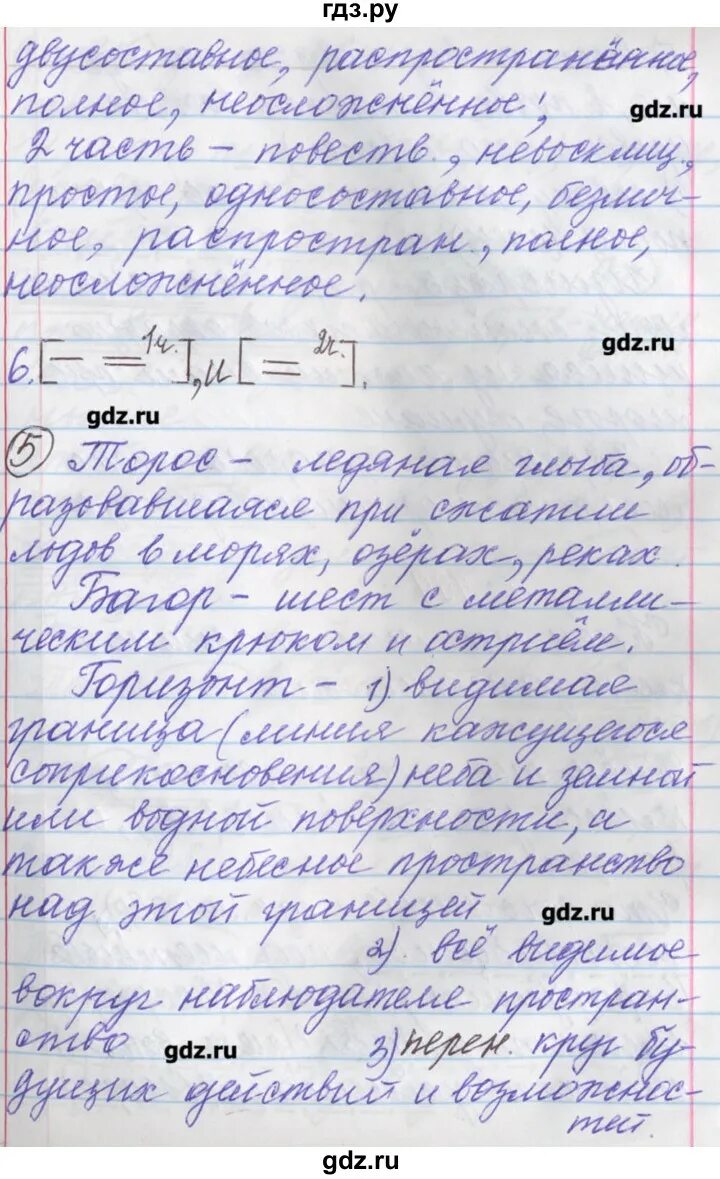 гдз.ру
двусоставное, распространённое,
полное, неосложнённое; gdz.ru
2 часть – повеств., невосклиц.,
простое, односоставное, безлич-
ное, распростран., полное,
неосложнённое.
gdz.ru
6. [— = 1ч.], и [= 2ч.].
gdz.ru
5 Торос – ледяная глыба, об-
разовавшаяся при сжатии
льдов в морях, озёрах, реках.
Багор – шест с металли-
ческим крюком и остриём.
Горизонт – 1) видимая
граница (линия кажущегося
соприкосновения) неба и земной
или водной поверхности, а
также небесное пространство
над этой границей gdz.ru
2) всё видимое
вокруг наблюдателя простран-
ство gdz.ru 3) перен. круг бу-
дущих действий и возможнос-
тей.
gdz.ru